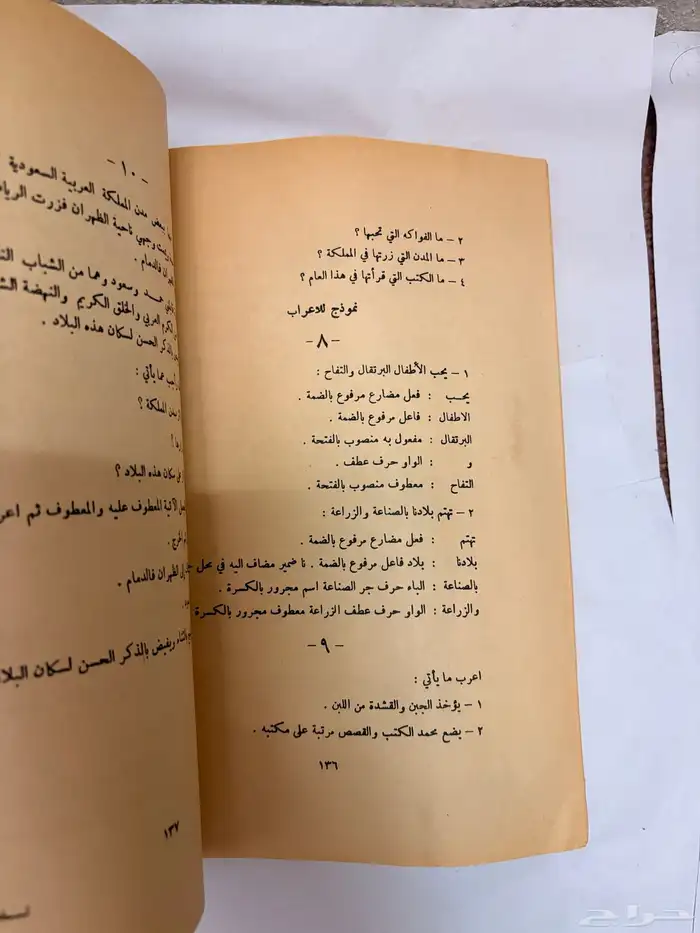 ٢ – ما الفواكه التي تحبها ؟
٣ – ما المدن التي زرتها في المملكة ؟
٤ – ما الكتب التي قرأتها في هذا العام ؟
نموذج للاعراب
– ٨ –
١ – يحب الأطفال البرتقال والتفاح :
يحب : فعل مضارع مرفوع بالضمة .
الاطفال : فاعل مرفوع بالضمة .
البرتقال : مفعول به منصوب بالفتحة .
و : الواو حرف عطف .
التفاح : معطوف منصوب بالفتحة .
٢ – تهتم بلادنا بالصناعة والزراعة :
تهتم : فعل مضارع مرفوع بالضمة .
بلادنا : بلاد فاعل مرفوع بالضمة . نا ضمير مضاف اليه في محل
بالصناعة : الباء حرف جر الصناعة اسم مجرور بالكسرة .
والزراعة : الواو حرف عطف الزراعة معطوف مجرور بالكسرة
– ٩ –
اعرب ما يأتي :
١ – يؤخذ الجبن والقشدة من اللبن .
٢ – يضع محمد الكتب والقصص مرتبة على مكتبه .
١٣٦
– ١٠ –
بعض مدن المملكة العربية السعودية
وجهي ناحية الظهران فزرت الرياض
فالدمام .
حمد وسعود وهما من الشباب
الكرم العربي والخلق الكريم والنهضة
والذكر الحسن لسكان هذه البلاد .
عما يأتي :
مدن المملكة ؟
سكان هذه البلاد ؟
الآتية المعطوف عليه والمعطوف ثم
الظهران فالدمام .
ويفيض بالذكر الحسن لسكان البلاد
١٣٧
حراج